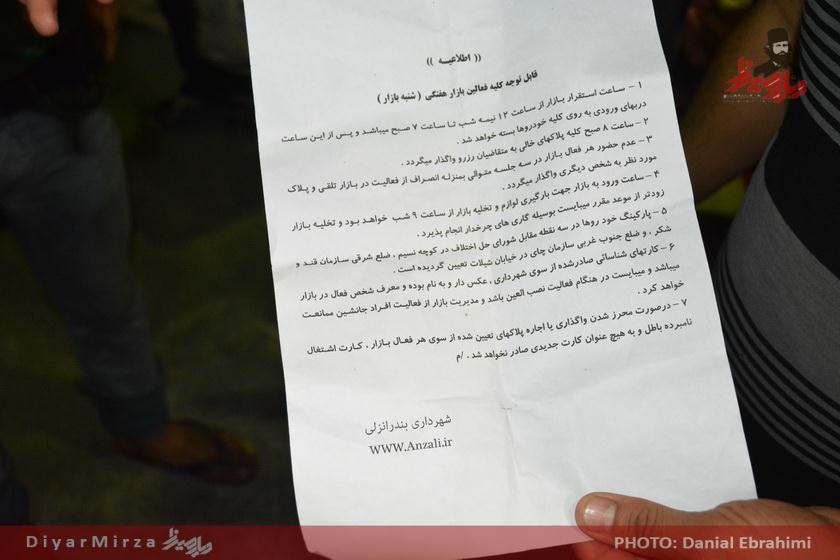 (( اطلاعیـه ))
قابل توجه کلیه فعالین بازار هفتگی ( شنبه بازار )
۱ – ساعت استقرار بازار از ساعت ۱۲ نیمه شب تـا ساعت ۷ صبح میباشد و پس از این ساعت
دربهای ورودی به روی کلیه خودروها بسته خواهد شد .
۲ – ساعت ۸ صبح کلیه پلاکهای خالی به متقاضیان رزرو واگذار میگردد .
۳ – عدم حضور هر فعال بازار در سه جلسه متوالی بمنزلـه انصراف از فعالیت در بازار تلقی و پلاک
مورد نظر به شخص دیگری واگذار میگردد .
۴ – ساعت ورود به بازار جهت بارگیری لوازم و تخلیه بازار از ساعت ۹ شب خواهـد بود و تخلیـه بازار
زودتر از موعد مقرر میبایست بوسیله گاری های چرخدار انجام پذیرد .
۵ – پارکینگ خود روها در سه نقطه مقابل شورای حل اختلاف در کوچه نسیم ، ضلع شرقی سازمان قنـد و
شکر ، و ضلع جنوب غربی سازمان چای در خیابان شیلات تعیین گردیده است .
۶ – کارتهای شناسائی صادرشده از سوی شهرداری ، عکس دار و به نام بوده و معرف شخص فعال در بازار
میباشد و میبایست در هنگام فعالیت نصب العین باشد و مدیریت بازار از فعالیـت افـراد جانشین ممانعـت
خواهد کرد .
۷ – درصورت محرز شدن واگذاری یا اجاره پلاکهای تعیین شده از سوی هر فعـال بـازار ، کـارت اشـتغال
نامبرده باطل و به هیچ عنوان کارت جدیدی صادر نخواهد شد . /م
شهرداری بندرانزلی
WWW.Anzali.ir
DiyarMirza دیارمیرزا
PHOTO: Danial Ebrahimi